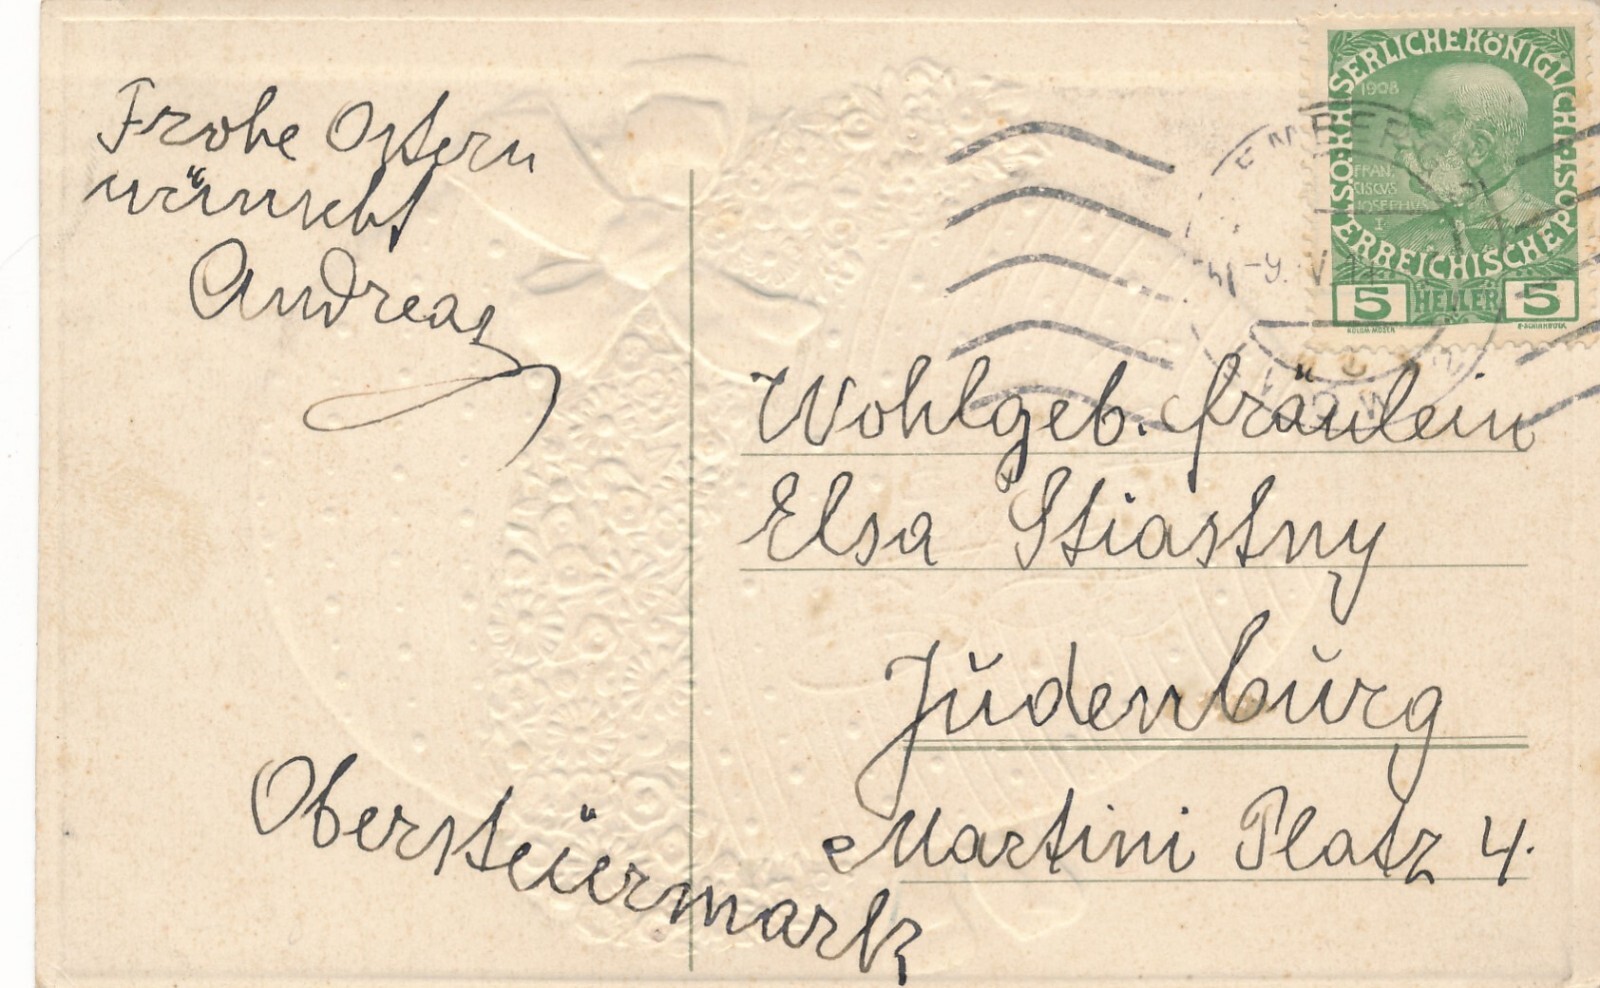 Frohe Ostern
wünscht
Andreas
KAISERLICHE KÖNIGLICHE
ÖSTERREICHISCHE POST
1908
FRAN
CISCVS
IOSEPHVS
I
5 HELLER 5
KOLOM. MOSER
Wohlgeb. Fräulein
Elsa Stiastny
Judenburg
Martini Platz 4.
Obersteiermark